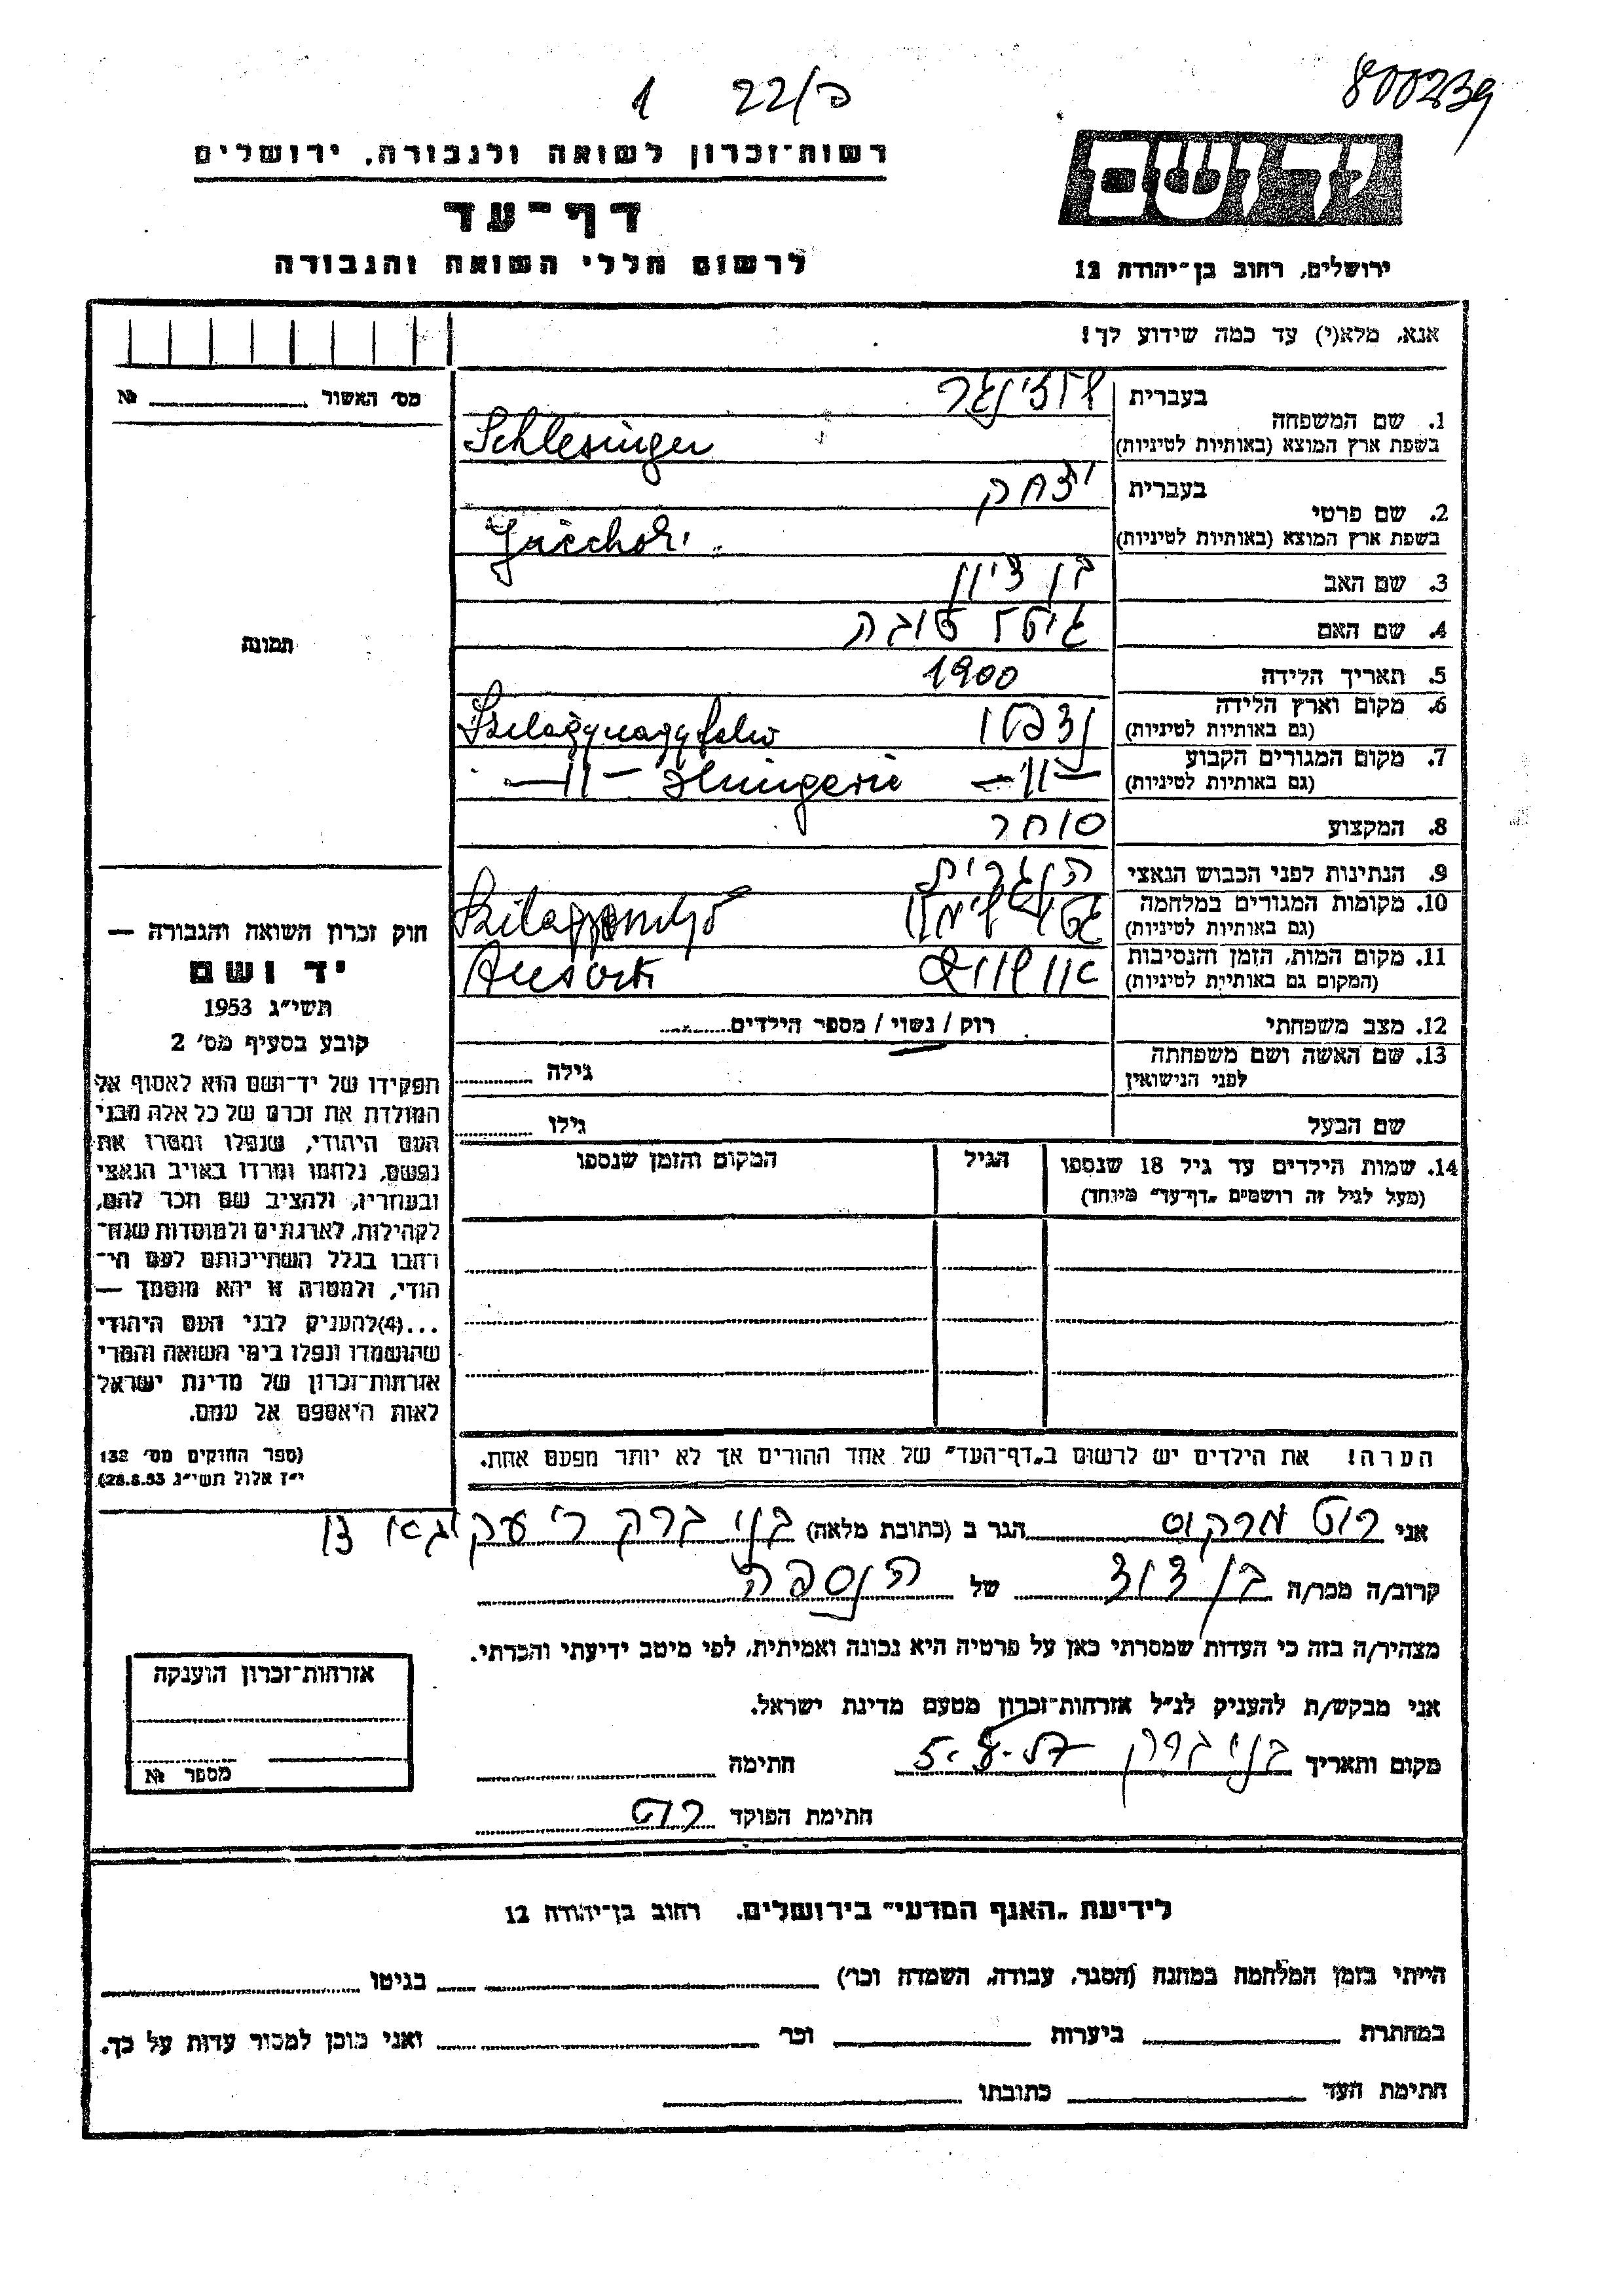 1 22/פ
800239
רשות־זכרון לשואה ולגבורה, ירושלים
יד ושם
דף־עד
לרשום חללי השואה והגבורה
ירושלים, רחוב בן־יהודה 12
אנא, מלא(י) עד כמה שידוע לך!
מס׳ האשור № 
בעברית שלזינגר
1. שם המשפחה
בשפת ארץ המוצא (באותיות לטיניות) Schlesinger
בעברית יצחק
2. שם פרטי
בשפת ארץ המוצא (באותיות לטיניות)
3. שם האב בן ציון
4. שם האם גיטל טובה
5. תאריך הלידה 1900
6. מקום וארץ הלידה
(גם באותיות לטיניות) Szilagynagyfalu
7. מקום המגורים הקבוע
(גם באותיות לטיניות) —11— —11— Hungerie
8. המקצוע סוחר
9. הנתינות לפני הכבוש הנאצי הונגרית
10. מקומות המגורים במלחמה
(גם באותיות לטיניות)
11. מקום המות, הזמן והנסיבות אושוויץ
(המקום גם באותיות לטיניות)
12. מצב משפחתי רוק / נשוי / מספר הילדים
13. שם האשה ושם משפחתה
לפני הנישואין גילה
שם הבעל גילו
14. שמות הילדים עד גיל 18 שנספו הגיל המקום והזמן שנספו
(מעל לגיל זה רושמים „דף־עד״ מיוחד)
הערה! את הילדים יש לרשום ב„דף־העד״ של אחד ההורים אך לא יותר מפעם אחת.
תמונה
חוק זכרון השואה והגבורה —
יד ושם
תשי״ג 1953
קובע בסעיף מס׳ 2
תפקידו של יד־ושם הוא לאסוף אל
המולדת את זכרם של כל אלה מבני
העם היהודי, שנפלו ומסרו את
נפשם, נלחמו ומרדו באויב הנאצי
ובעוזריו, ולהציב שם וזכר להם,
לקהילות, לארגונים ולמוסדות שנח־
רבו בגלל השתייכותם לעם הי־
הודי, ולמטרה זו יהא מוסמך —
...(4)להעניק לבני העם היהודי
שהושמדו ונפלו בימי השואה והמרי
אזרחות־זכרון של מדינת ישראל
לאות היאספם אל עמם.
(ספר החוקים מס׳ 132
י״ז אלול תשי״ג 28.8.53)
אני רוט מרקוס הגר ב (כתובת מלאה) בני ברק ר׳ עקיבא
קרוב/ה מכר/ה בן דוד של הנספה
מצהיר/ה בזה כי העדות שמסרתי כאן על פרטיה היא נכונה ואמיתית, לפי מיטב ידיעתי והכרתי.
אני מבקש/ת להעניק לנ״ל אזרחות־זכרון מטעם מדינת ישראל.
מקום ותאריך בני ברק 5.8.57 חתימה
חתימת הפוקד רוט
אזרחות־זכרון הוענקה
מספר №
לידיעת „האגף המדעי״ בירושלים, רחוב בן־יהודה 12
הייתי בזמן המלחמה במחנה (הסגר, עבודה, השמדה וכו׳) בגיטו
במחתרת ביערות וכו׳ ואני מוכן למסור עדות על כך.
חתימת העד כתובתו